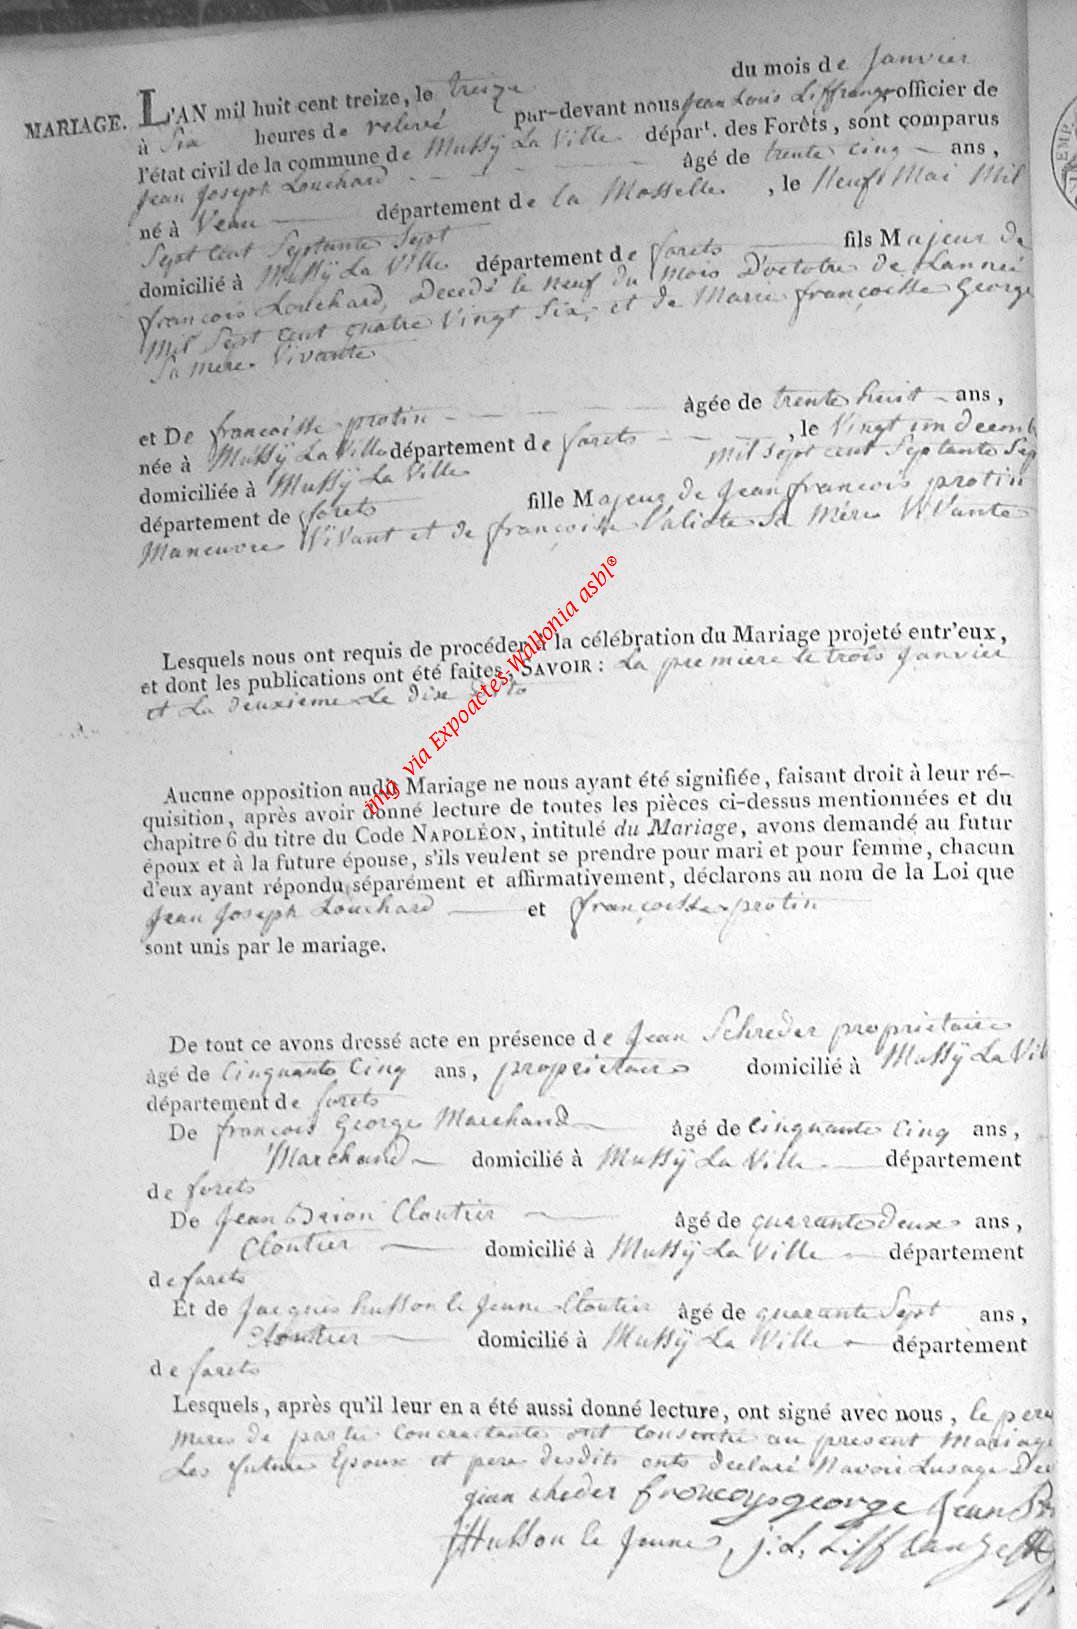 MARIAGE. L'AN mil huit cent treize, le treize du mois de Janvier
à Six heures de relevé par-devant nous Jean Louis Liffrange officier de
l'état civil de la commune de Mussÿ La Ville départ. des Forêts, sont comparus
Jean Joseph Louchard âgé de trente cinq ans,
né à département de la Mosselle, le Neuf Mai Mil
Sept Cent Septante Sept
domicilié à Mussÿ La Ville département de forets fils Majeur de
françois Louchard, Decedé le neuf du mois D'octobre de Lanneé
Mil Sept Cent quatre Vingt Six, et de Marie françoisse George
Sa mere Vivante
et De françoisse protin âgée de trente huit ans,
née à Mussÿ La Ville département de forets, le Vingt un decemb
mil sept cent Septante Sep
domiciliée à Mussÿ La Ville
département de forets fille Majeur de Jean françois protin
Maneuvre ViVant et de françoisse Sa Mére ViVante
Lesquels nous ont requis de procéder à la célébration du Mariage projeté entr'eux,
et dont les publications ont été faites, SAVOIR : La premiere le trois Janvier
et La deuxieme Le dix
Aucune opposition audit Mariage ne nous ayant été signifiée, faisant droit à leur ré-
quisition, après avoir donné lecture de toutes les pièces ci-dessus mentionnées et du
chapitre 6 du titre du Code NAPOLÉON, intitulé du Mariage, avons demandé au futur
époux et à la future épouse, s'ils veulent se prendre pour mari et pour femme, chacun
d'eux ayant répondu séparément et affirmativement, déclarons au nom de la Loi que
Jean Joseph Louchard et françoisse protin
sont unis par le mariage.
De tout ce avons dressé acte en présence de Jean Schreder proprietaire
âgé de Cinquante Cinq ans, proprietaire domicilié à Mussÿ La Vil
département de forets
De francois George Marchand âgé de Cinquante Cinq ans,
Marchand domicilié à Mussÿ La Ville département
de forets
De Jean Cloutier âgé de quarante deux ans,
Cloutier domicilié à Mussÿ La Ville département
de forets
Et de Jacques husson le Jeune Cloutier âgé de quarante Sept ans,
Cloutier domicilié à Mussÿ La Ville département
de forets
Lesquels, après qu'il leur en a été aussi donné lecture, ont signé avec nous, le pere
meres de partie Concractantes ont Consentie au present Mariage
Les future Epoux et pere desdits onts declaré Navoir Lusage
jean cheder francoys george Jean
JHusson le Jeune, j. L. Liffrange
img via Expoactes-Wallonia asbl®